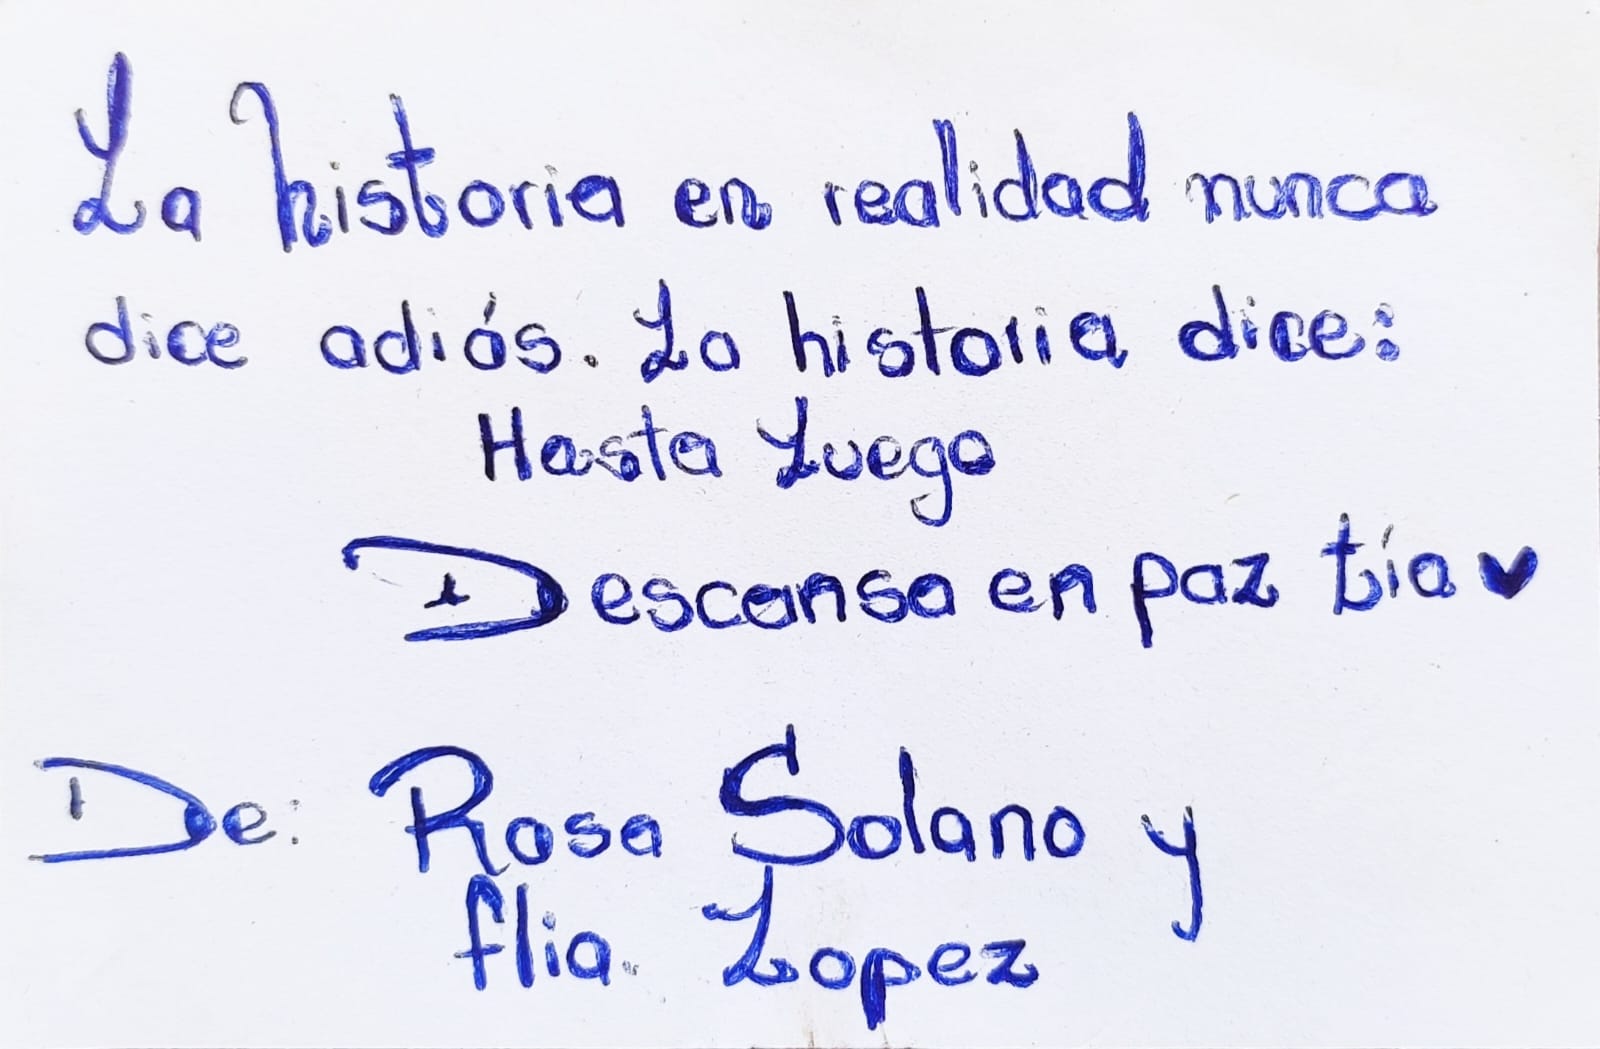 La historia en realidad nunca
dice adiós. La historia dice:
Hasta Luego
Descansa en paz tía ♥
De: Rosa Solano y
flia. Lopez